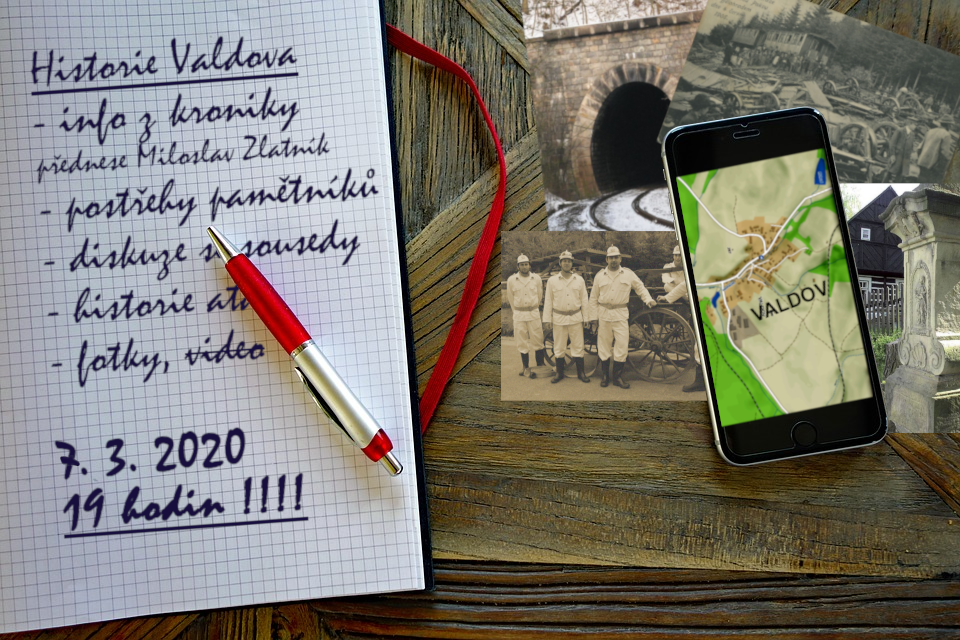 Historie Valdova
- info z kroniky
přednese Miloslav Zlatník
- postřehy pamětníků
- diskuze s sousedy
- historie
- fotky, video
7. 3. 2020
19 hodin !!!!
VALDOV